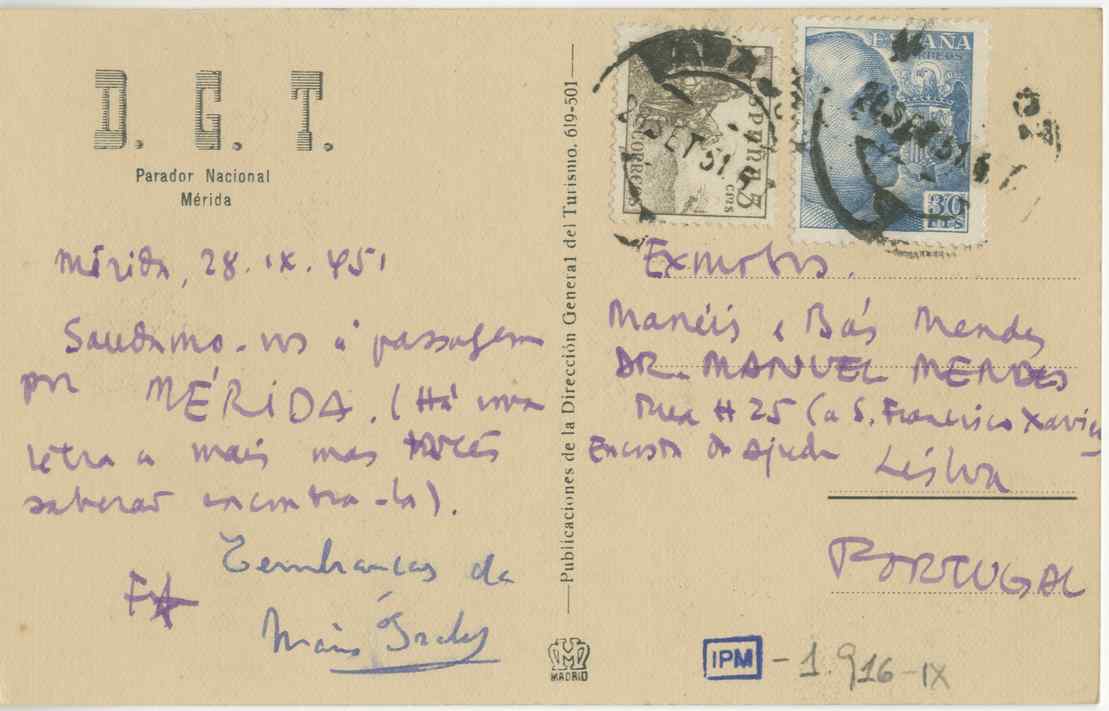 D. G. T.
Parador Nacional
Mérida
Mérida, 28. IX. 951
Saudamo-vos à passagem
por MÉRIDA. (Há uma
letra a mais mas vocês
saberão encontra-la).
Lembranças da
Maria
Publicaciones de la Dirección General del Turismo. 619-501
MADRID
ESPAÑA
CORREOS
5
CTS
CORREOS
SET 51
ESPAÑA
CORREOS
30
CTS
28 SET 51
Exmos
Manéis e Bás Mendes
DR. MANUEL MENDES
Rua H 25 (a S. Francisco Xavier
Encosta da Ajuda Lisboa
PORTUGAL
IPM - 1.916-IX